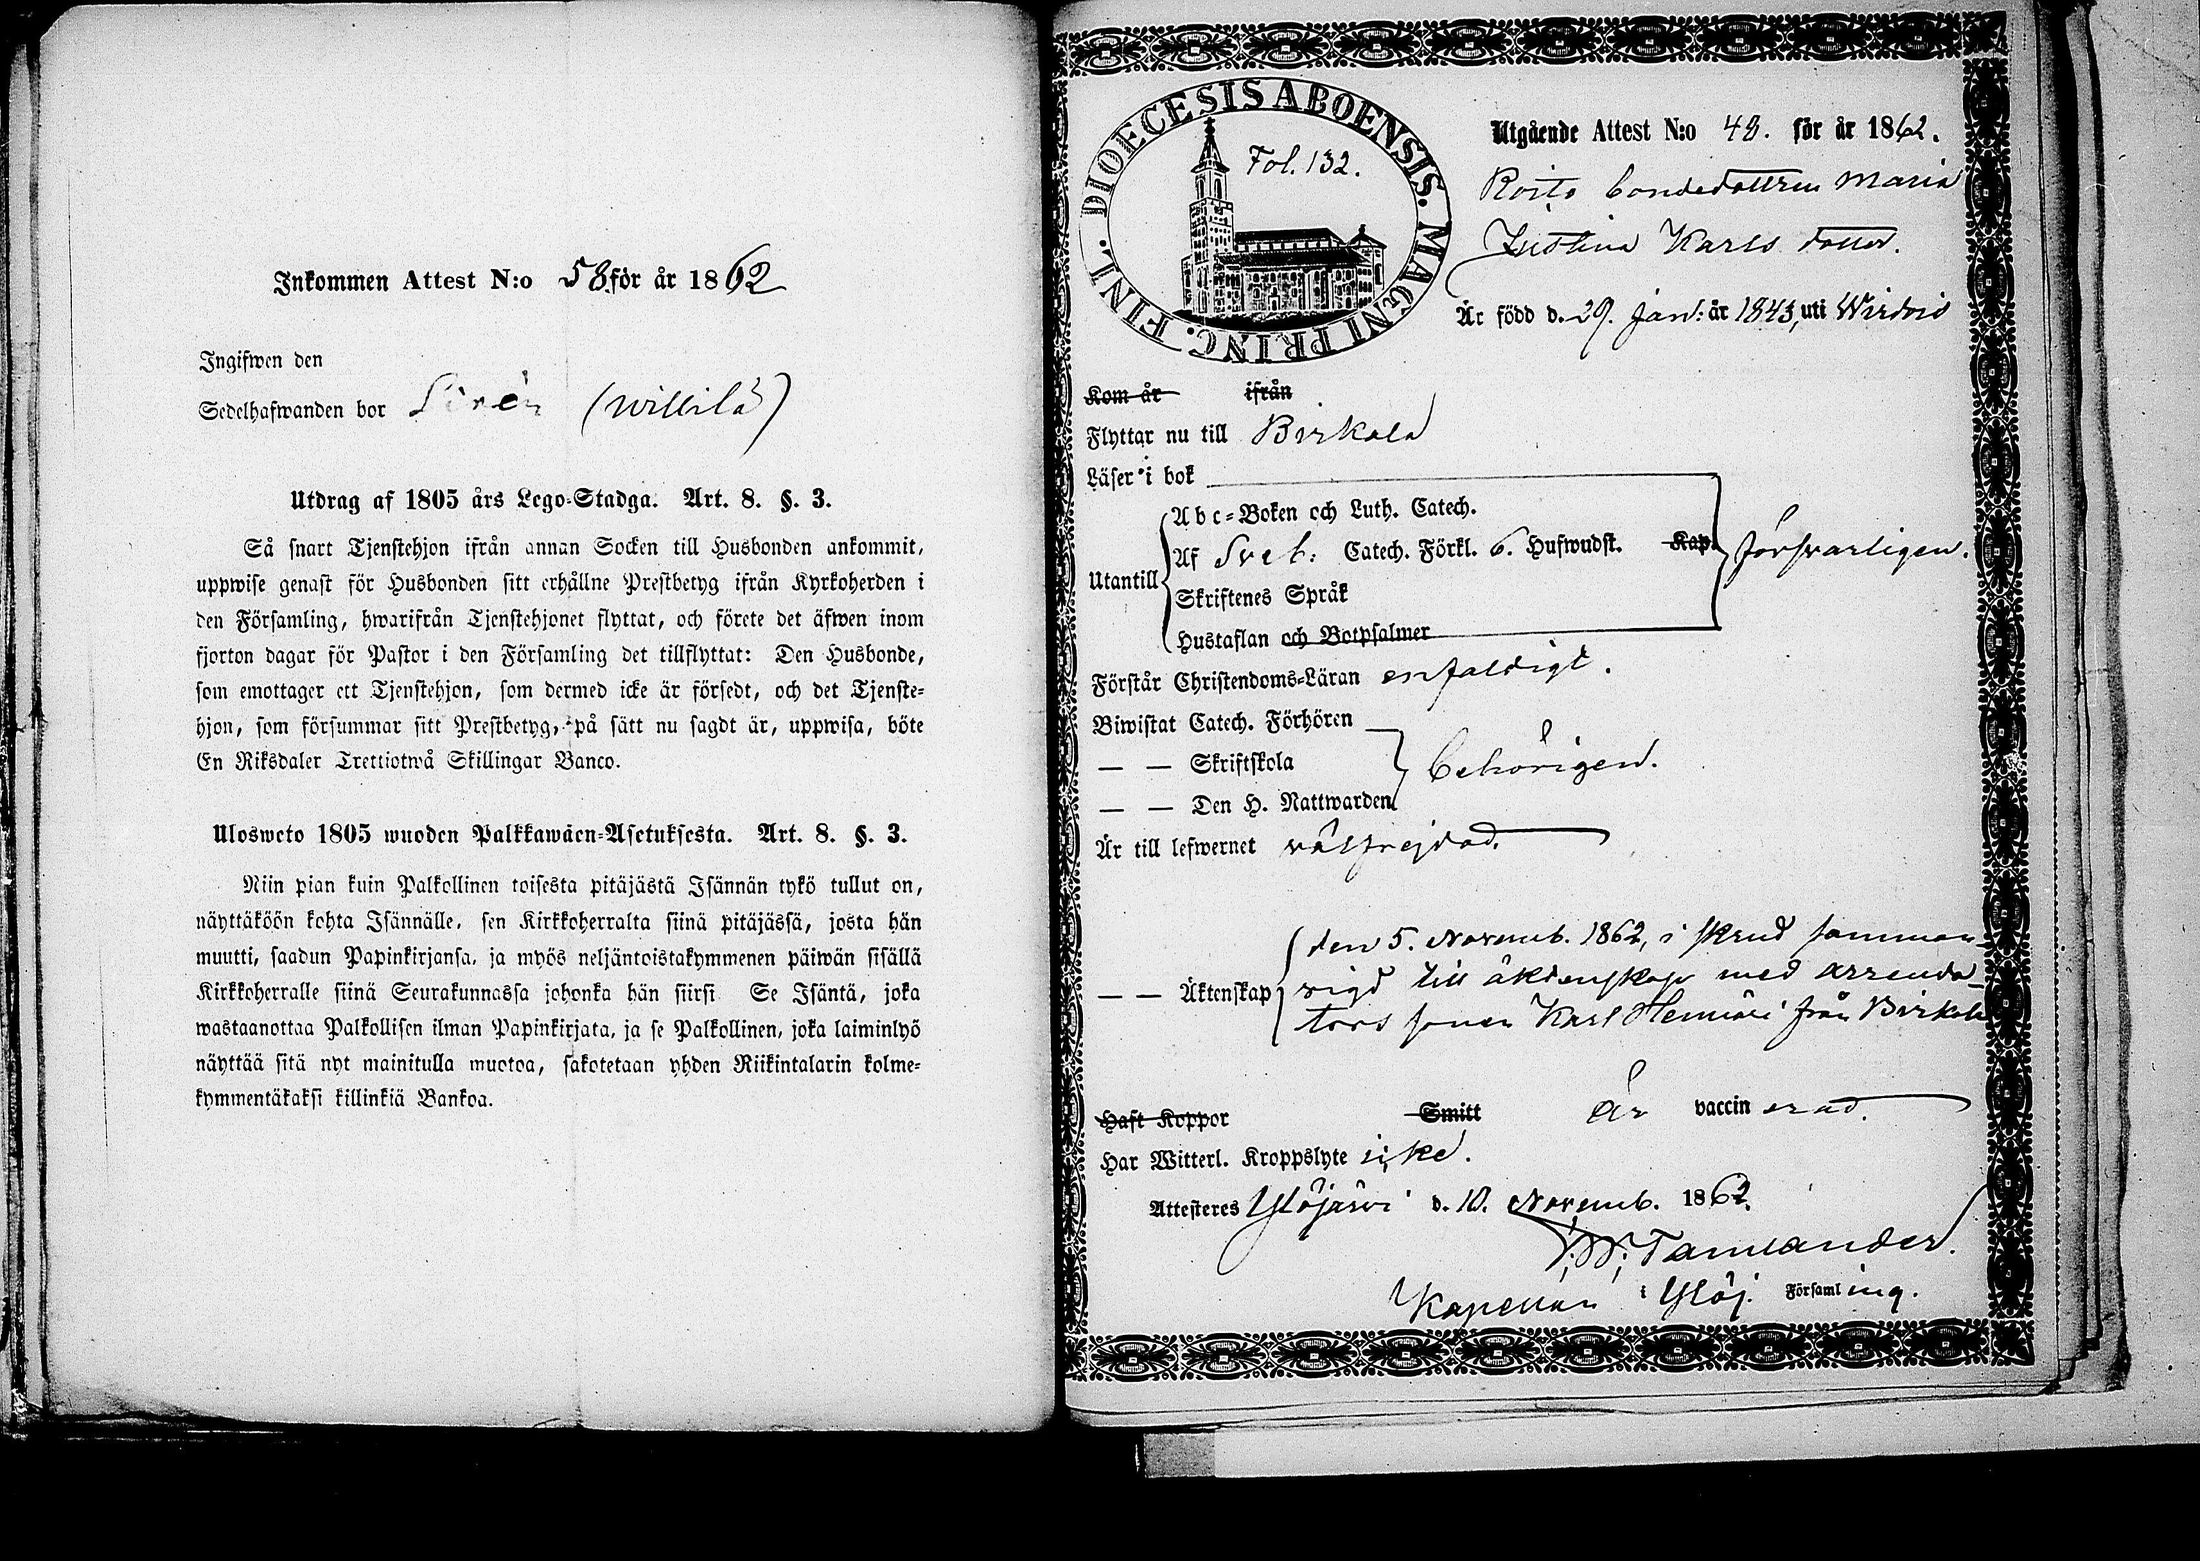 Inkommen Attest N:o 58 för år 1862
Ingifwen den
Sedelhafwanden bor Sirén (Willilä)
Utdrag af 1805 års Lego-Stadga. Art. 8. §. 3.
Så snart Tjenstehjon ifrån annan Socken till Husbonden ankommit,
uppwise genast för Husbonden sitt erhållne Prestbetyg ifrån Kyrkoherden i
den Församling, hwarifrån Tjenstehjonet flyttat, och förete det äfwen inom
fjorton dagar för Pastor i den Församling det tillflyttat: Den Husbonde,
som emottager ett Tjenstehjon, som dermed icke är försedt, och det Tjenste-
hjon, som försummar sitt Prestbetyg, på sätt nu sagdt är, uppwisa, böte
En Riksdaler Trettiotwå Skillingar Banco.
Ulosweto 1805 wuoden Palkkawäen-Asetuksesta. Art. 8. §. 3.
Niin pian kuin Palkollinen toisesta pitäjästä Isännän tykö tullut on,
näyttäköön kohta Isännälle, sen Kirkkoherralta siinä pitäjässä, josta hän
muutti, saadun Papinkirjansa, ja myös neljäntoistakymmenen päiwän sisällä
Kirkkoherralle siinä Seurakunnassa johonka hän siirsi Se Isäntä, joka
wastaanottaa Palkollisen ilman Papinkirjata, ja se Palkollinen, joka laiminlyö
näyttää sitä nyt mainitulla muotoa, sakotetaan yhden Riikintalarin kolme-
kymmentäkaksi killinkiä Bankoa.
DIOECESIS ABOENSIS. MAGNI PRINC. FINL.
Fol. 132.
Utgående Attest N:o 48. för år 1862.
Roito bondedottren Maria
Justina Karls dotter.
Är född d. 29. Jan: år 1843, uti Wirdois
Kom år ifrån
Flyttar nu till Birkala
Läser i bok
Utantill
Abc-Boken och Luth. Catech.
Af Sveb: Catech. Förkl. 6. Hufwudst. Kap. försvarligen.
Skriftenes Språk
Hustaflan och Botpsalmer
Förstår Christendoms-Läran enfaldigt.
Biwistat Catech. Förhören
— — Skriftskola behörigen.
— — Den H. Nattwarden
Är till lefwernet välfrejdad.
den 5. Novemb. 1862, i Skrud samman-
— — Äktenskap vigd till äktenskap med arrenda-
tors sonen Karl Heniäri från Birkala
Haft Koppor Smitt Är vaccinerad.
Har Witterl. Kroppslyte icke.
Attesteres Ylöjärvi d. 10. Novemb. 1862.
W: Tamlander.
Kapellan i Ylöj. Församling.